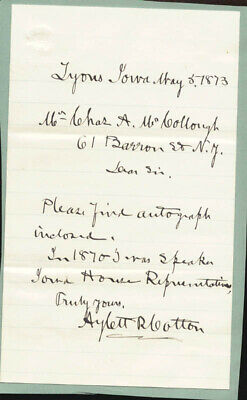 Lyons Iowa May 5, 1873
Mr Chas A. McCollough
61 Barrow St N.Y.
Dear Sir.
Please find autograph
inclosed.
In 1870 I was Speaker
Iowa House Representatives,
Truly yours,
Aylett R. Cotton